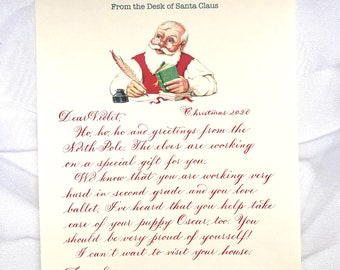 From the Desk of Santa Claus
Dear Violet, Christmas 2020
Ho, ho, ho and greetings from the
North Pole. The elves are working
on a special gift for you.
We know that you are working very
hard in second grade and you love
ballet. I've heard that you help take
care of your puppy Oscar, too. You
should be very proud of yourself!
I can't wait to visit your house.